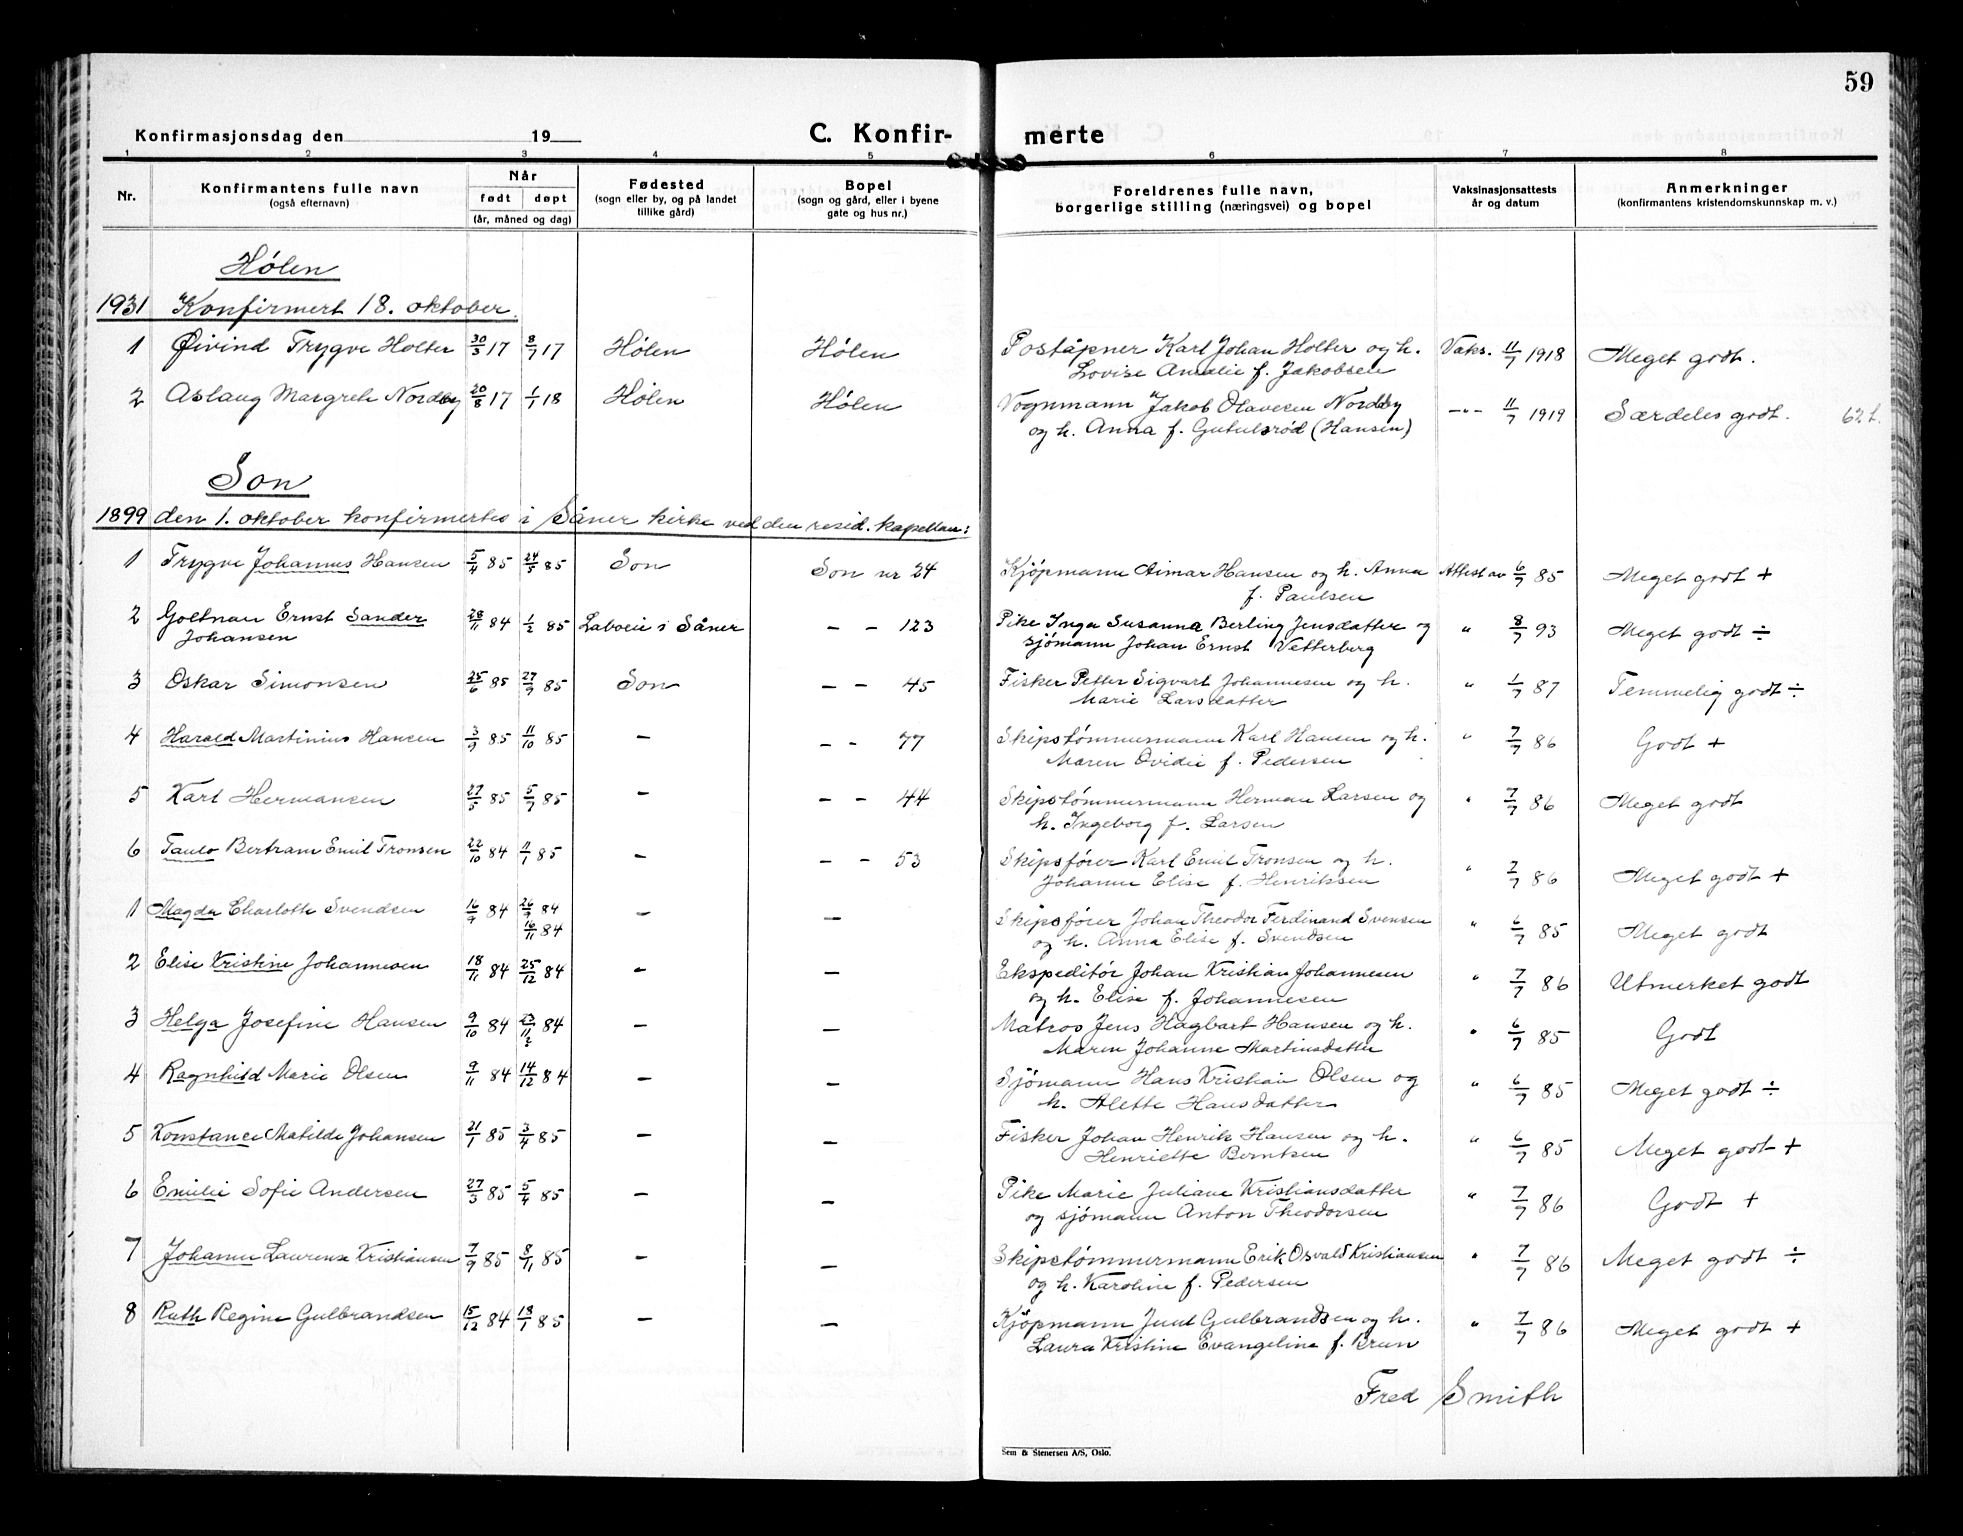 59
Konfirmasjonsdag den 19
C. Konfir-
merte
1 2 3 4 5 6 7 8
Nr. Konfirmantens fulle navn (også efternavn) Når født døpt (år, måned og dag) Fødested (sogn eller by, og på landet tillike gård) Bopel (sogn og gård, eller i byene gate og hus nr.) Foreldrenes fulle navn, borgerlige stilling (næringsvei) og bopel Vaksinasjonsattests år og datum Anmerkninger (konfirmantens kristendomskunnskap m. v.)
Hølen
1931 Konfirmert 18. oktober.
1 Øivind Trygve Holter 30/3 17 8/7 17 Hølen Hølen Poståpner Karl Johan Holter og h. Vaks. 11/7 1918 Meget godt.
Lovise Amalie f. Jakobsen
2 Aslaug Margrete Nordby 20/8 17 1/1 18 Hølen Hølen Vognmann Jakob Olavesen Nordby –"– 11/7 1919 Særdeles godt. 62 t.
og h. Anna f. Gutulsrød (Hansen)
Son
1899 den 1. oktober konfirmertes i Såner kirke ved den resid. kapellan:
1 Trygve Johannes Hansen 5/4 85 24/5 85 Son Son nr 24 Kjøpmann Aimar Hansen og h. Anna Attest av 6/7 85 Meget godt +
f. Paulsen
2 Goltnau Ernst Sander 28/11 84 1/2 85 Laboeie i Såner – – 123 Pike Inga Susanna Berling Jensdatter og " 8/7 93 Meget godt ÷
Johansen sjømann Johan Ernst Vetterberg
3 Oskar Simonsen 25/6 85 27/9 85 Son – – 45 Fisker Petter Sigvart Johannesen og h. " 1/7 87 Temmelig godt ÷
Marie Larsdatter
4 Harald Martinius Hansen 3/9 85 11/10 85 – – – 77 Skipstømmermann Karl Hansen og h. " 7/7 86 Godt +
Maren Ovidie f. Pedersen
5 Karl Hermansen 27/5 85 5/7 85 – – – 44 Skipstømmermann Herman Larsen og " 7/7 86 Meget godt
h. Ingeborg f. Larsen
6 Taulo Bertram Emil Tronsen 22/10 84 11/1 85 – – – 53 Skipsfører Karl Emil Tronsen og h. " 7/7 86 Meget godt +
Johanne Elise f. Henriksen
1 Magda Charlotte Svendsen 16/9 84 26/9 84 – – Skipsfører Johan Theodor Ferdinand Svensen " 6/7 85 Meget godt
16/11 84 og h. Anna Elise f. Svendsen
2 Elise Kristine Johannesen 18/11 84 25/12 84 – – Ekspeditør Johan Kristian Johannesen " 7/7 86 Utmerket godt
og h. Elise f. Johannesen
3 Helga Josefine Hansen 9/10 84 84 – – Matros Jens Hagbart Hansen og h. " 6/7 85 Godt
Maren Johanne Martinsdatter
4 Ragnhild Marie Olsen 9/11 84 14/12 84 – – Sjømann Hans Kristian Olsen og " 6/7 85 Meget godt ÷
h. Alette Hansdatter
5 Konstance Matilde Johansen 21/1 85 3/4 85 – – Fisker Johan Henrik Hansen og h. " 6/7 85 Meget godt +
Henriette Berntsen
6 Emilie Sofie Andersen 27/3 85 5/4 85 – – Pike Marie Juliane Kristiansdatter " 7/7 86 Godt +
og sjømann Anton Theodorsen
7 Johanne Laurense Kristiansen 7/9 85 8/11 85 – – Skipstømmermann Erik Osvald Kristiansen " 7/7 86 Meget godt ÷
og h. Karoline f. Pedersen
8 Ruth Regine Gulbrandsen 15/12 84 18/1 85 – – Kjøpmann Juul Gulbrandsen og h. " 7/7 86 Meget godt +
Laura Kristine Evangeline f. Brun
Fred Smith
Sem & Stenersen A/S, Oslo.